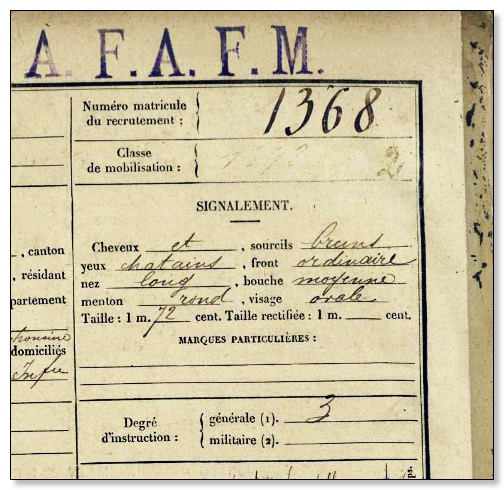 A. F. A. F. M.
Numéro matricule
du recrutement : 1368
Classe
de mobilisation : 2
SIGNALEMENT.
Cheveux et , sourcils bruns
, canton
yeux chatains , front ordinaire
, résidant
nez long , bouche moyenne
partement
menton rond , visage ovale
Taille : 1 m. 72 cent. Taille rectifiée : 1 m. cent.
MARQUES PARTICULIÈRES :
domiciliés
Infre
Degré
d'instruction :
générale (1). 3
militaire (2).